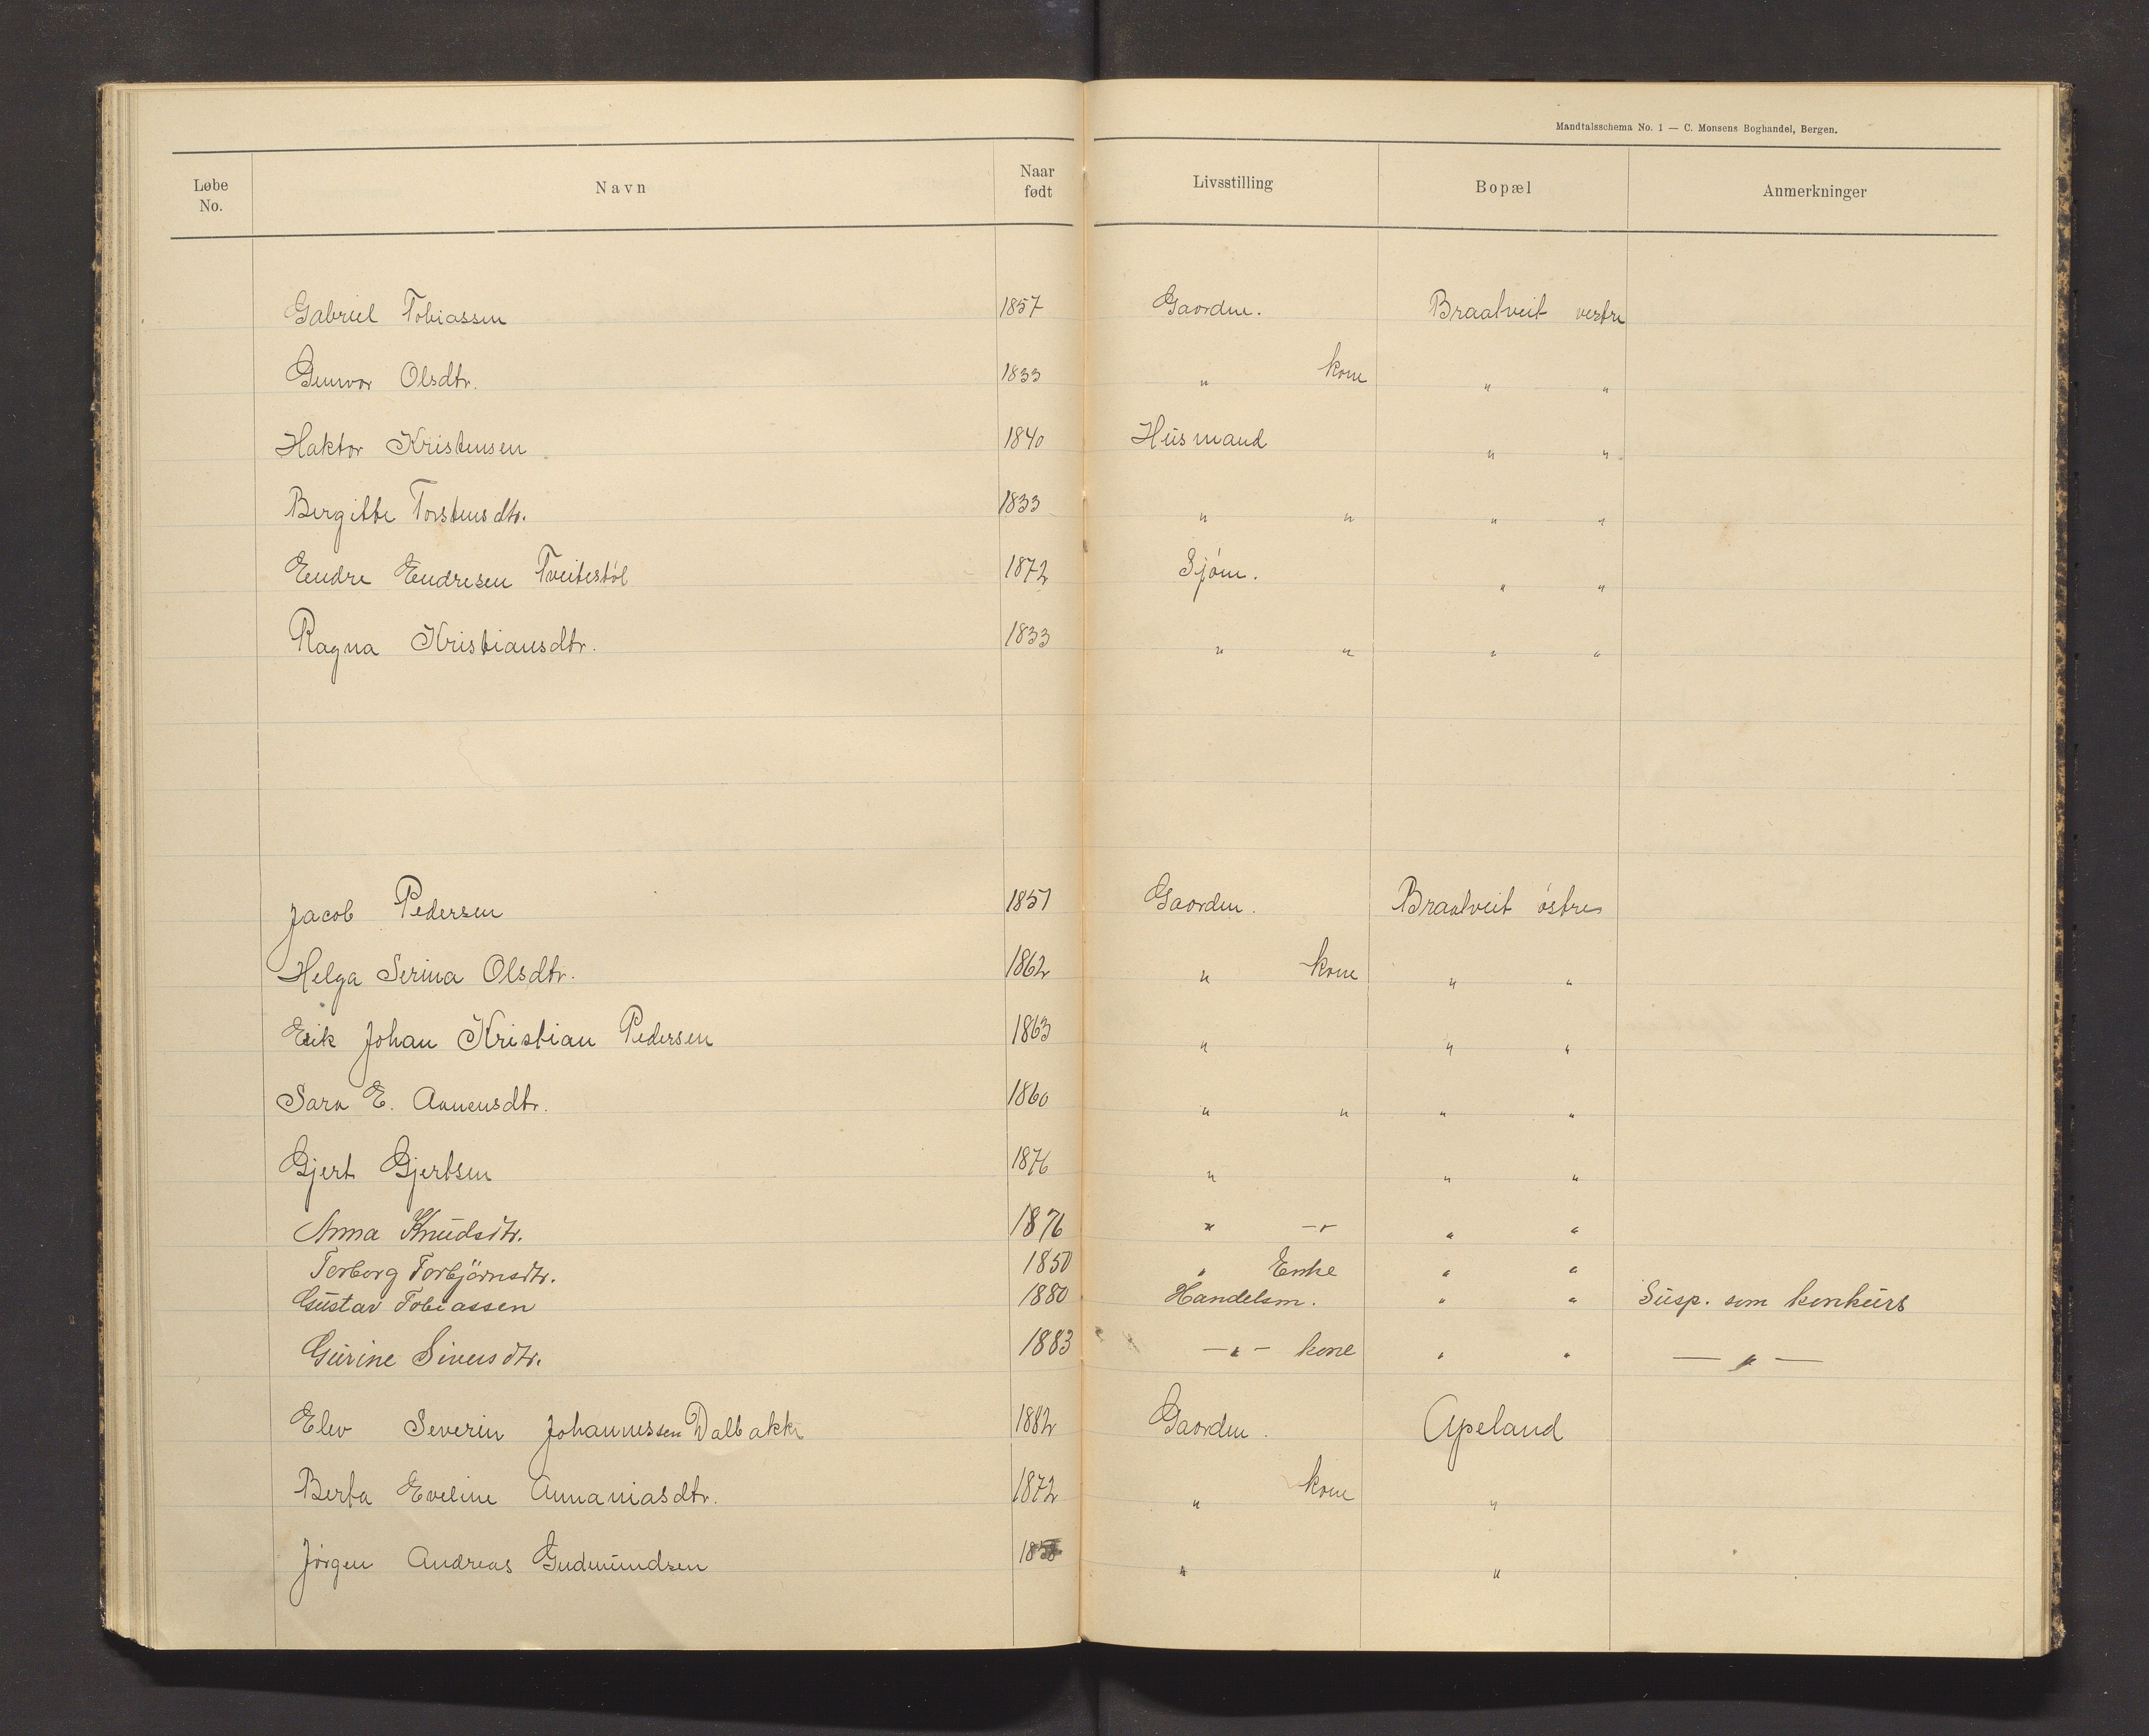 Mandtalsschema No. 1 — C. Monsens Boghandel, Bergen.
Løbe No. Navn Naar født Livsstilling Bopæl Anmerkninger
Gabriel Tobiassen 1857 Gaardm. Braatveit vestre
Gunvor Olsdtr. 1833 " kone " "
Haktor Kristensen 1840 Husmand " "
Bergitte Torstensdtr. 1833 " " " "
Endre Endresen Tveitestöl 1872 Sjöm. " "
Ragna Kristiansdtr. 1833 " " " "
Jacob Pedersen 1851 Gaardm. Braatveit östre
Helga Serina Olsdtr. 1862 " kone " "
Erik Johan Kristian Pedersen 1863 " " "
Sara E. Aanensdtr. 1860 " " " "
Gjert Gjertsen 1876 " " "
Anna Knudsdtr. 1876 " -"- " "
Torborg Torbjörnsdtr. 1850 " Enke " "
Gustav Tobiassen 1880 Handelsm. " " Susp. som konkurs
Gurine Siversdtr. 1883 -"- kone " " — " —
Elev Severin Johannessen Dalbakk 1882 Gaardm. Apeland
Berta Eveline Annaniasdtr. 1872 " kone "
Jörgen Andreas Gudmundsen " "